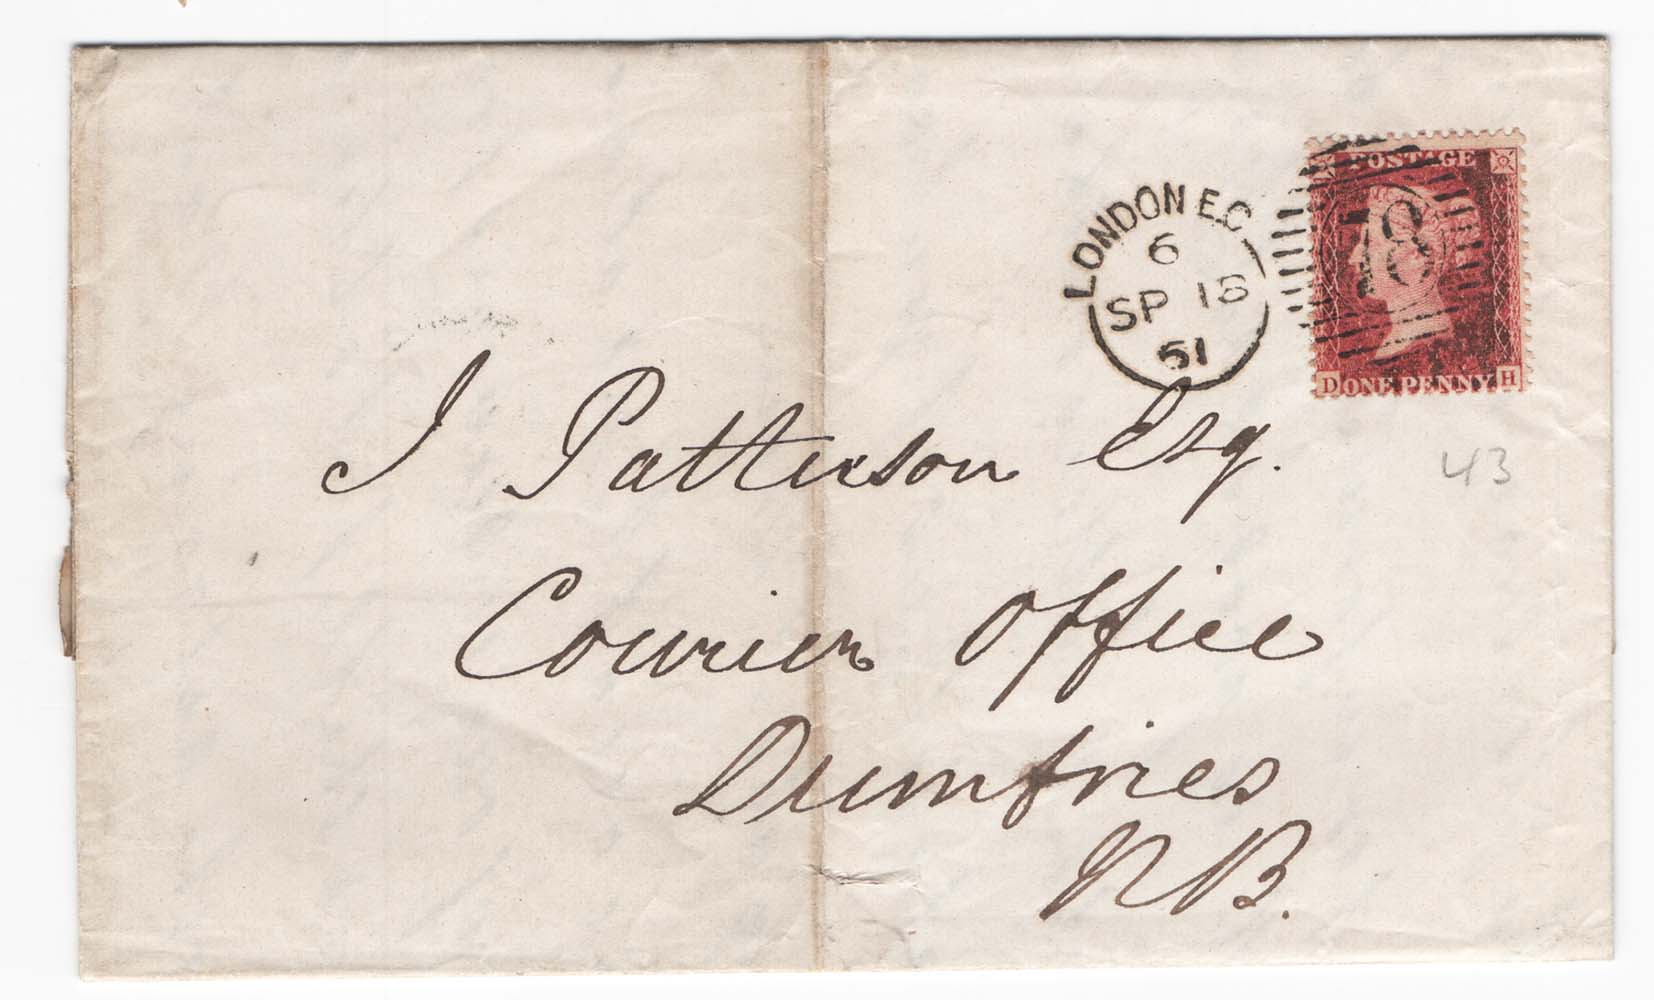 POSTAGE
18
D ONE PENNY H
LONDON E.C
6
SP 18
61
J Patterson Esq.
43
Courier Office
Dumfries
NB.